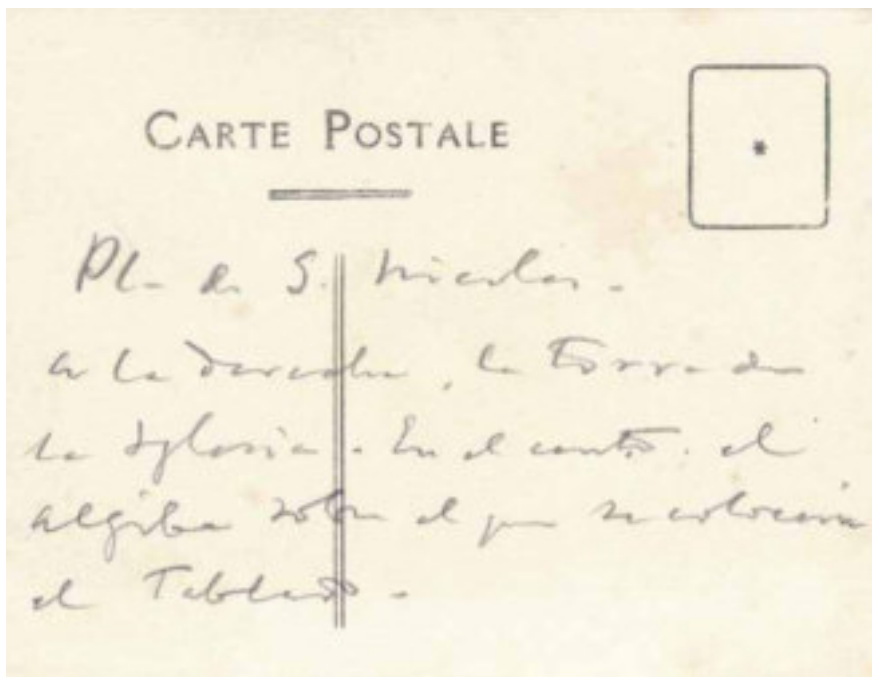 CARTE POSTALE
*
Pl. de S. Nicolas.
a la derecha, la Torre de
la Iglesia. En el centro. el
algibe sobre el que se colocaria
el Tablado.